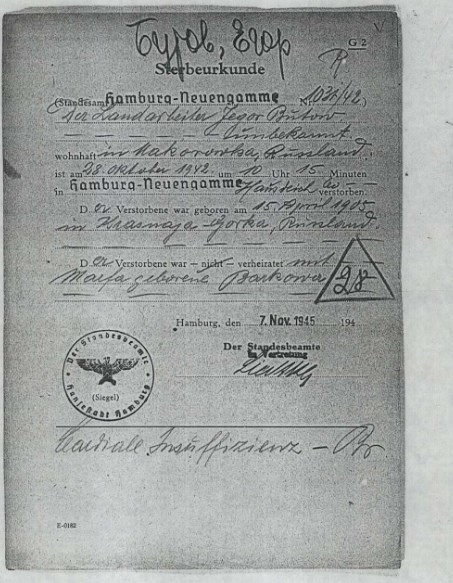 Бутов, Егор
G 2
R
Sterbeurkunde
(Standesamt Hamburg-Neuengamme Nr. 1034/42.)
Der Landarbeiter Jegor Butow
— — — — — unbekannt
wohnhaft in Makorowka, Russland
ist am 28. Oktober 1942 um 10 Uhr 15 Minuten
in Hamburg-Neuengamme Hausdeich verstorben.
D er Verstorbene war geboren am 15. April 1905
in Krasnaja-Gorka, Russland
D er Verstorbene war — nicht — verheiratet mit
Marfa geborene Barkowa
28
Hamburg, den 7. Nov. 1945 194
Der Standesbeamte
In Vertretung
Der Standesbeamte
(Siegel)
Hansestadt Hamburg
Cardiale Insuffizienz —
E-0182